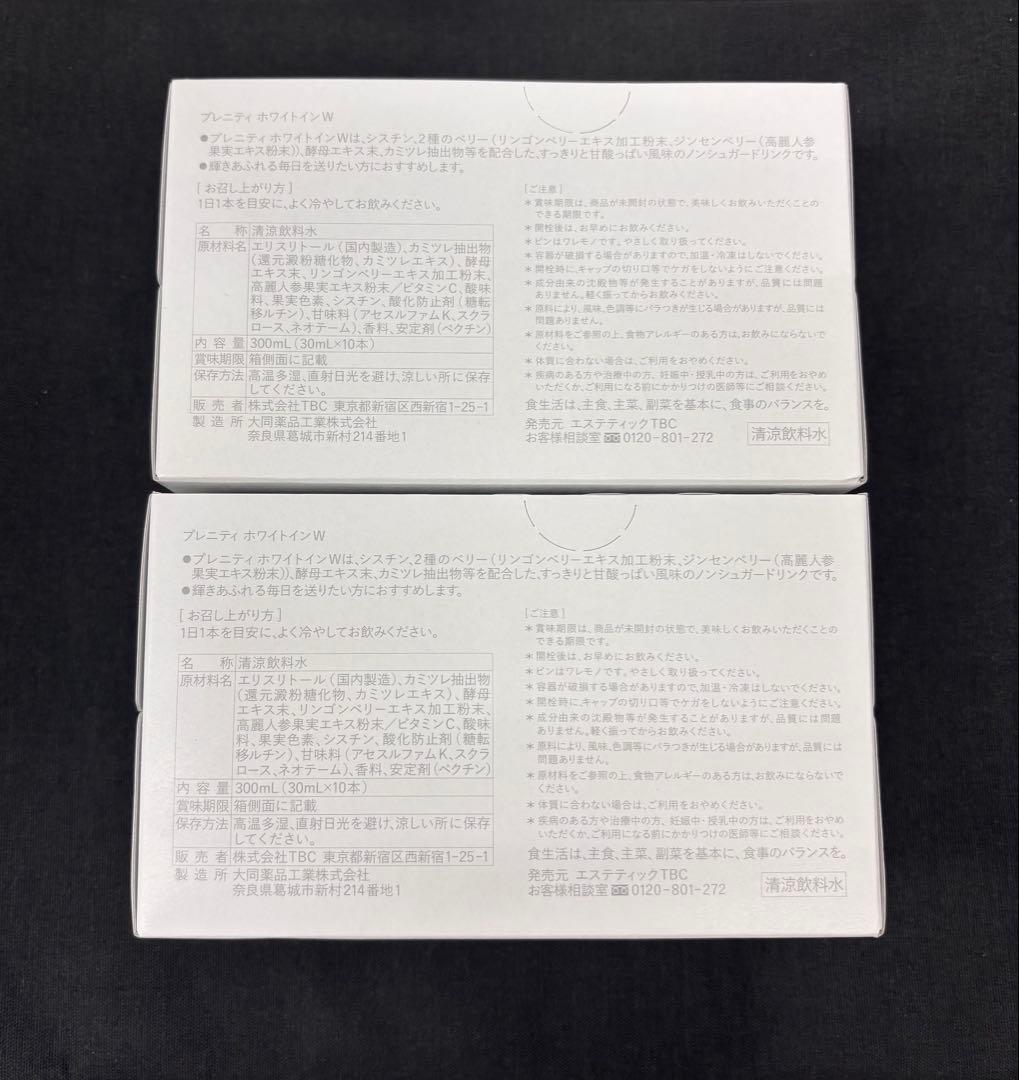 プレニティ ホワイトインW
●プレニティ ホワイトインWは、シスチン、2種のベリー(リンゴンベリーエキス加工粉末、ジンセンベリー(高麗人参
果実エキス粉末))、酵母エキス末、カミツレ抽出物等を配合した、すっきりと甘酸っぱい風味のノンシュガードリンクです。
●輝きあふれる毎日を送りたい方におすすめします。
[お召し上がり方]
1日1本を目安に、よく冷やしてお飲みください。
名 称 清涼飲料水
原材料名 エリスリトール(国内製造)、カミツレ抽出物
(還元澱粉糖化物、カミツレエキス)、酵母
エキス末、リンゴンベリーエキス加工粉末、
高麗人参果実エキス粉末/ビタミンC、酸味
料、果実色素、シスチン、酸化防止剤(糖転
移ルチン)、甘味料(アセスルファムK、スクラ
ロース、ネオテーム)、香料、安定剤(ペクチン)
内容量 300mL(30mL×10本)
賞味期限 箱側面に記載
保存方法 高温多湿、直射日光を避け、涼しい所に保存
してください。
販売者 株式会社TBC 東京都新宿区西新宿1-25-1
製造所 大同薬品工業株式会社
奈良県葛城市新村214番地1
[ご注意]
＊賞味期限は、商品が未開封の状態で、美味しくお飲みいただくことの
できる期限です。
＊開栓後は、お早めにお飲みください。
＊ビンはワレモノです。やさしく取り扱ってください。
＊容器が破損する場合がありますので、加温・冷凍はしないでください。
＊開栓時に、キャップの切り口等でケガをしないようにご注意ください。
＊成分由来の沈殿物等が発生することがありますが、品質には問題
ありません。軽く振ってからお飲みください。
＊原料により、風味、色調等にバラつきが生じる場合がありますが、品質には
問題ありません。
＊原材料をご参照の上、食物アレルギーのある方は、お飲みにならないで
ください。
＊体質に合わない場合は、ご利用をおやめください。
＊疾病のある方や治療中の方、妊娠中・授乳中の方は、ご利用をおやめ
いただくか、ご利用になる前にかかりつけの医師等にご相談ください。
食生活は、主食、主菜、副菜を基本に、食事のバランスを。
発売元 エステティックTBC
お客様相談室 0120-801-272
清涼飲料水
プレニティ ホワイトインW
●プレニティ ホワイトインWは、シスチン、2種のベリー(リンゴンベリーエキス加工粉末、ジンセンベリー(高麗人参
果実エキス粉末))、酵母エキス末、カミツレ抽出物等を配合した、すっきりと甘酸っぱい風味のノンシュガードリンクです。
●輝きあふれる毎日を送りたい方におすすめします。
[お召し上がり方]
1日1本を目安に、よく冷やしてお飲みください。
名 称 清涼飲料水
原材料名 エリスリトール(国内製造)、カミツレ抽出物
(還元澱粉糖化物、カミツレエキス)、酵母
エキス末、リンゴンベリーエキス加工粉末、
高麗人参果実エキス粉末/ビタミンC、酸味
料、果実色素、シスチン、酸化防止剤(糖転
移ルチン)、甘味料(アセスルファムK、スクラ
ロース、ネオテーム)、香料、安定剤(ペクチン)
内容量 300mL(30mL×10本)
賞味期限 箱側面に記載
保存方法 高温多湿、直射日光を避け、涼しい所に保存
してください。
販売者 株式会社TBC 東京都新宿区西新宿1-25-1
製造所 大同薬品工業株式会社
奈良県葛城市新村214番地1
[ご注意]
＊賞味期限は、商品が未開封の状態で、美味しくお飲みいただくことの
できる期限です。
＊開栓後は、お早めにお飲みください。
＊ビンはワレモノです。やさしく取り扱ってください。
＊容器が破損する場合がありますので、加温・冷凍はしないでください。
＊開栓時に、キャップの切り口等でケガをしないようにご注意ください。
＊成分由来の沈殿物等が発生することがありますが、品質には問題
ありません。軽く振ってからお飲みください。
＊原料により、風味、色調等にバラつきが生じる場合がありますが、品質には
問題ありません。
＊原材料をご参照の上、食物アレルギーのある方は、お飲みにならないで
ください。
＊体質に合わない場合は、ご利用をおやめください。
＊疾病のある方や治療中の方、妊娠中・授乳中の方は、ご利用をおやめ
いただくか、ご利用になる前にかかりつけの医師等にご相談ください。
食生活は、主食、主菜、副菜を基本に、食事のバランスを。
発売元 エステティックTBC
お客様相談室 0120-801-272
清涼飲料水